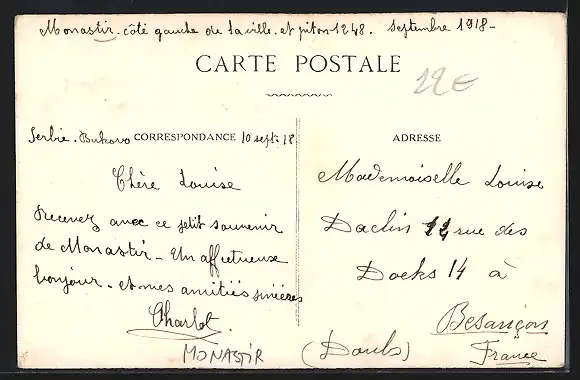 Monastir. côté gauche de la ville. et piton 1248. Septembre 1918-
CARTE POSTALE
12€
Serbie. Bukovo CORRESPONDANCE 10 sept. 18
ADRESSE
Chère Louise
Recevez avec ce petit souvenir
de Monastir - Un affectueuse
bonjour. et mes amitiés sincères
Charlot.
MONASTIR
Mademoiselle Louise
Daclin 14 rue des
Docks 14 à
Besançon
(Doubs)
France